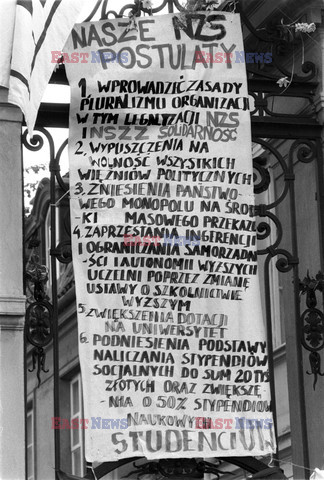 NASZE NZS
POSTULATY
1. WPROWADZIĆ ZASADY
PLURALIZMU ORGANIZACJI
W TYM LEGALIZACJI NZS
I NSZZ SOLIDARNOŚĆ
2. WYPUSZCZENIA NA
WOLNOŚĆ WSZYSTKICH
WIĘŹNIÓW POLITYCZNYCH
3. ZNIESIENIA PAŃSTWO-
WEGO MONOPOLU NA ŚROD-
-KI MASOWEGO PRZEKAZU
4. ZAPRZESTANIA INGERENCJI
I OGRANICZANIA SAMORZĄDN
-ŚCI I AUTONOMII WYŻSZYCH
UCZELNI POPRZEZ ZMIANĘ
USTAWY O SZKOLNICTWIE
WYŻSZYM
5. ZWIĘKSZENIA DOTACJI
NA UNIWERSYTET
6. PODNIESIENIA PODSTAWY
NALICZANIA STYPENDIÓW
SOCJALNYCH DO SUM 20 TYŚ
ZŁOTYCH ORAZ ZWIĘKSZE
-NIA O 50% STYPENDIÓW
NAUKOWYCH
STUDENCI UW
EAST NEWS
EAST NEWS
EAST NEWS
EAST NEWS
EAST NEWS